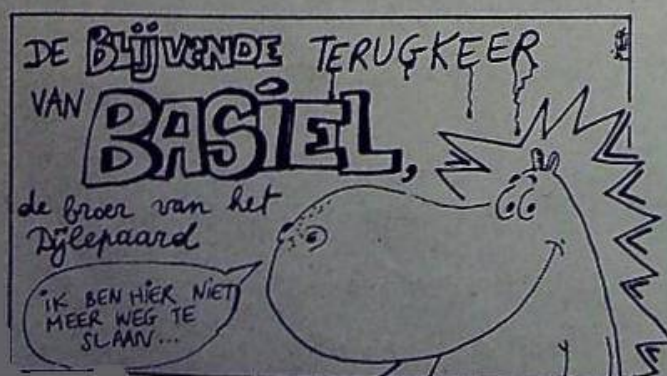 DE BLIJVENDE TERUGKEER
VAN BASIEL,
de broer van het
Dijlepaard
IK BEN HIER NIET
MEER WEG TE
SLAAN...